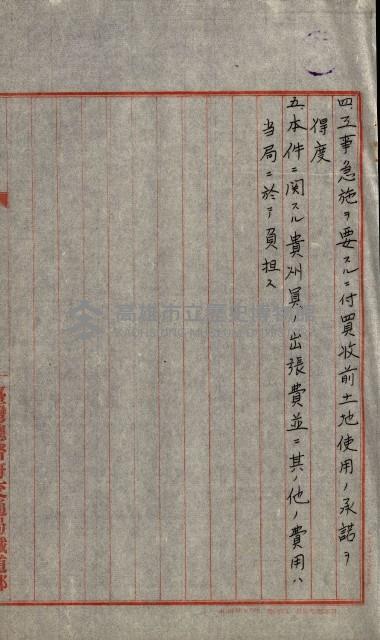 四、工事急施ヲ要スルニ付買收前土地使用ノ承諾ヲ
得度
五、本件ニ関スル貴州員ノ出張費並ニ其ノ他ノ費用ハ
当局ニ於テ負担ス
臺灣總督府交通局鐵道部
高雄市立歷史博物館